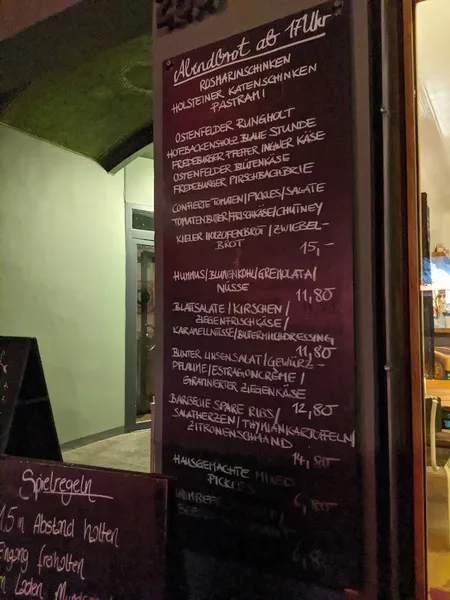 Abendbrot ab 17 Uhr
ROSMARINSCHINKEN
HOLSTEINER KATENSCHINKEN
PASTRAMI
OSTENFELDER RUNGHOLT
HOFBACKENSHOLZ BLAUE STUNDE
FREDEBURGER PFEFFER INGWER KÄSE
OSTENFELDER BLÜTENKÄSE
FREDEBURGER PIRSCHBACHBRIE
CONFIERTE TOMATEN/PICKLES/SALATE
TOMATENBUTTER/FRISCHKÄSE/CHUTNEY
KIELER HOLZOFENBROT/ZWIEBEL-
BROT
15,-
HUMMUS/BLUMENKOHL/GREMOLATA/
NÜSSE
11,80
BLATTSALATE/KIRSCHEN/
ZIEGENFRISCHKÄSE/
KARAMELLNÜSSE/BUTTERMILCHDRESSING
11,80
BUNTER LINSENSALAT/GEWÜRZ-
PFLAUME/ESTRAGONCRÈME/
GRATINIERTER ZIEGENKÄSE
12,80
BARBECUE SPARE RIBS/
SALATHERZEN/THYMIANKARTOFFELN/
ZITRONENSCHMAND
14,80
HAUSGEMACHTE MIXED
PICKLES
4,80
Spielregeln
1,5 m Abstand halten
Eingang freihalten
Laden